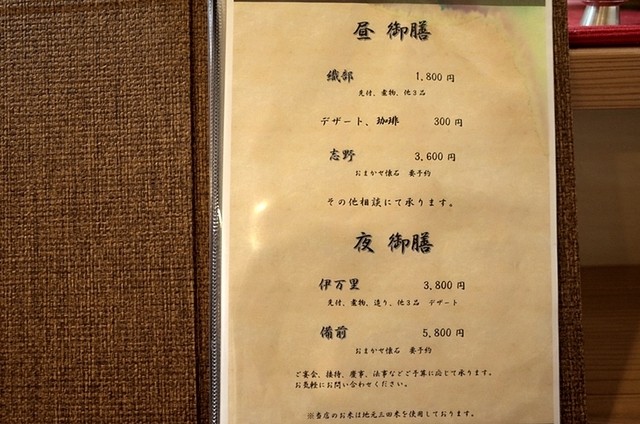 昼 御膳
織部 1,800円
先付、煮物、他3品
デザート、珈琲 300円
志野 3,600円
おまかせ懐石 要予約
その他相談にて承ります。
夜 御膳
伊万里 3,800円
先付、煮物、造り、他3品 デザート
備前 5,800円
おまかせ懐石 要予約
ご宴会、接待、慶事、法事などご予算に応じて承ります。
お気軽にお問い合わせください。
※当店のお米は地元三田米を使用しております。